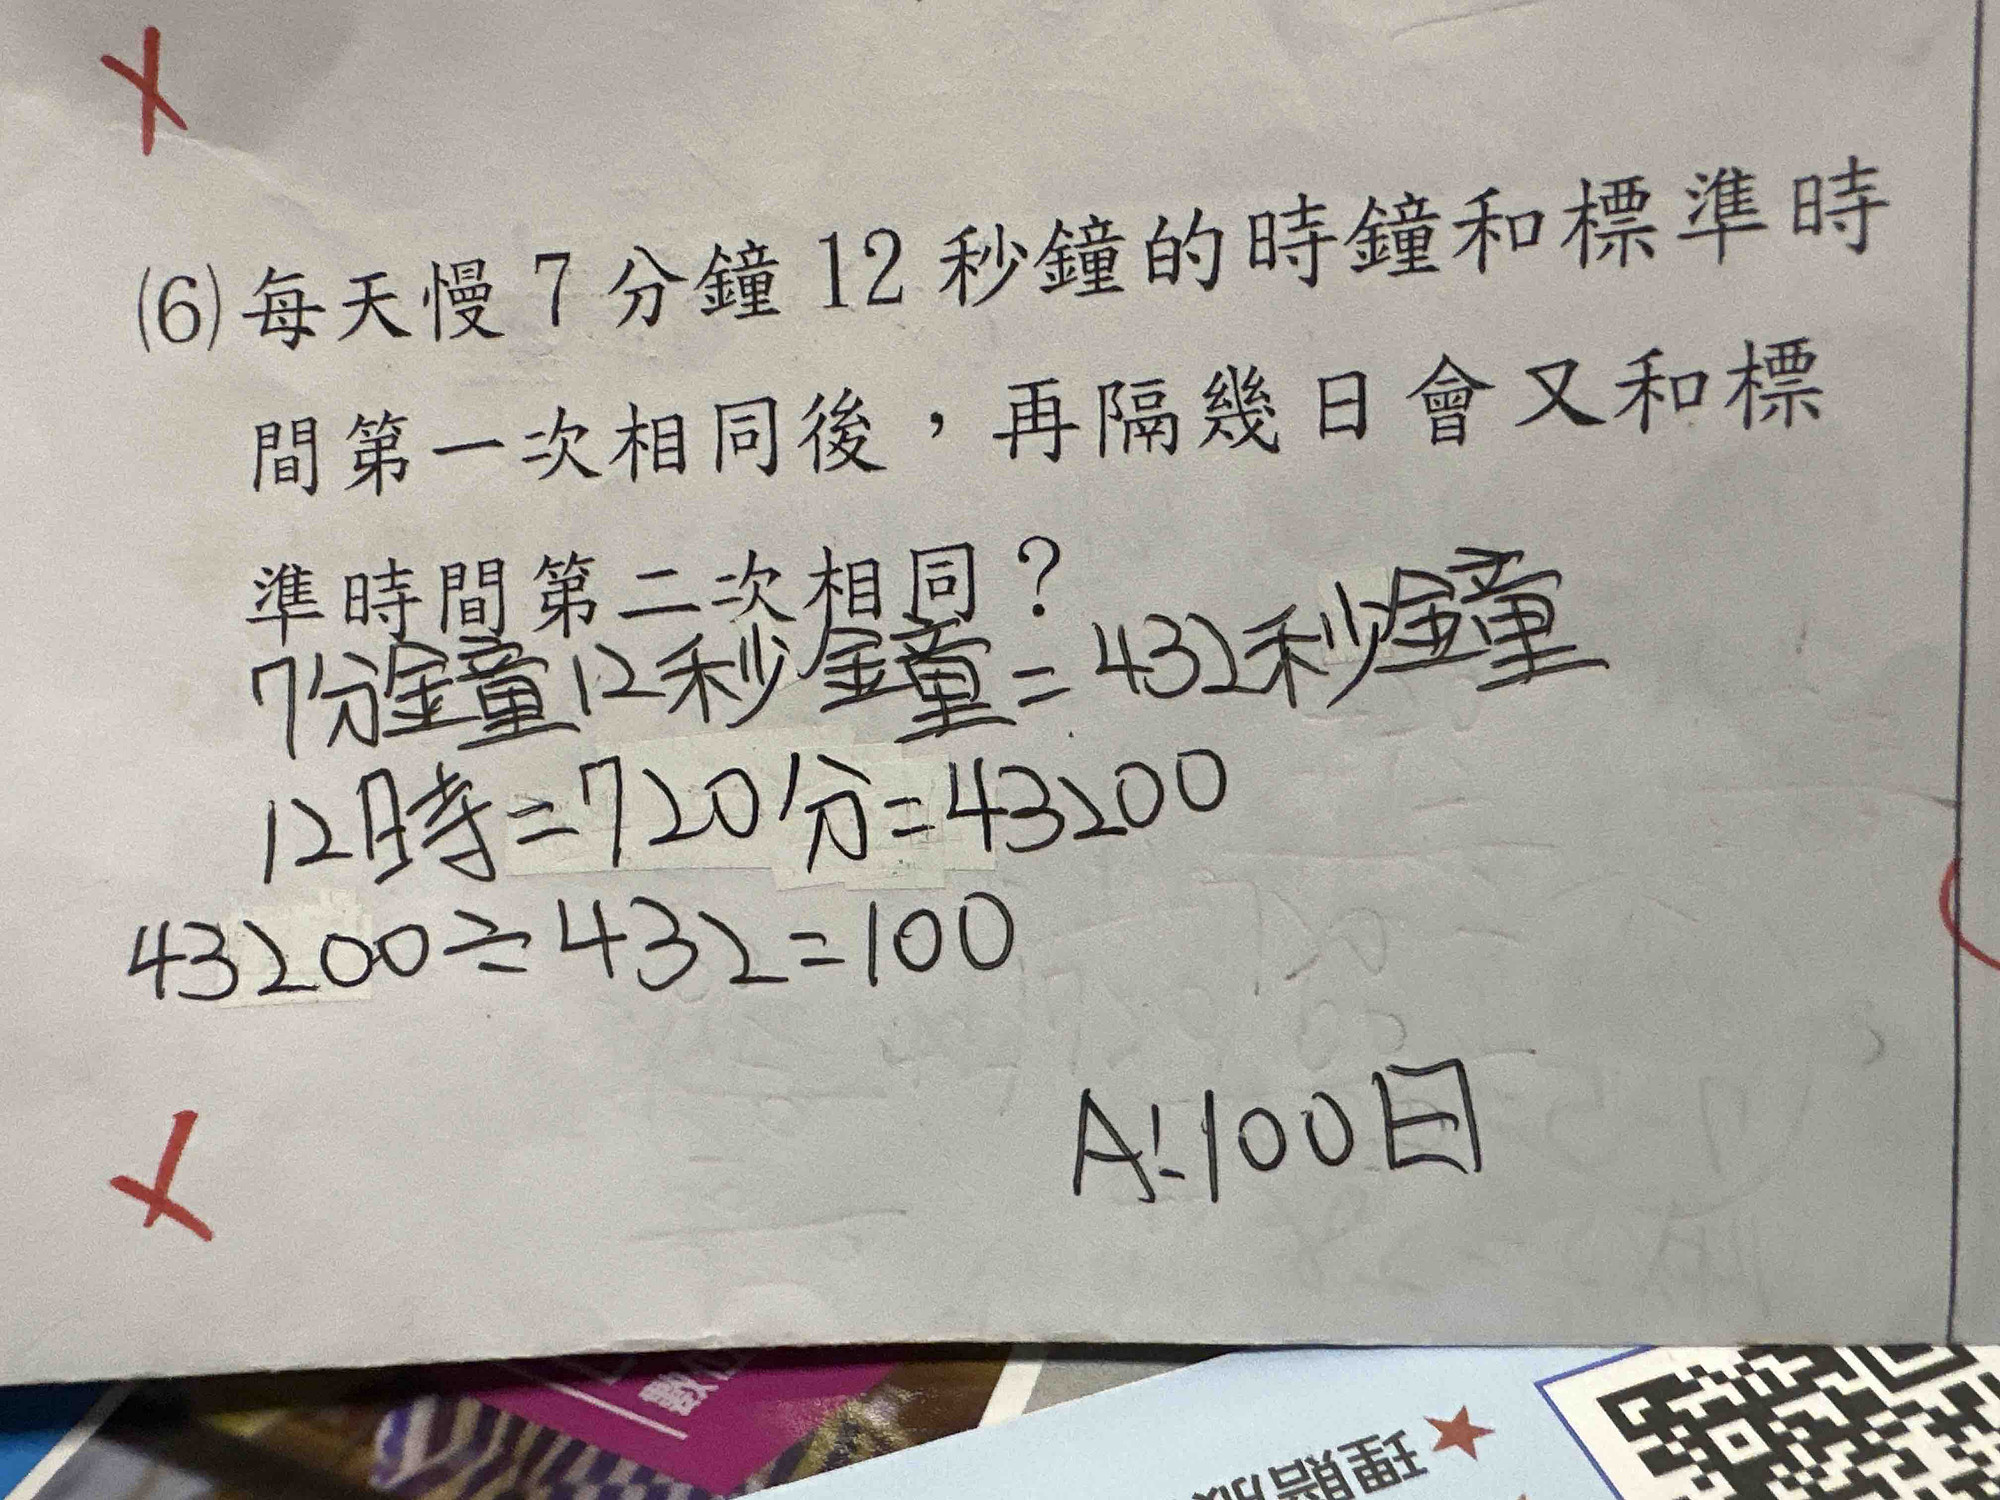 (6)每天慢7分鐘12秒鐘的時鐘和標準時
間第一次相同後，再隔幾日會又和標
準時間第二次相同？
7分鐘12秒鐘=432秒鐘
12時=720分=43200
43200÷432=100
A:100日